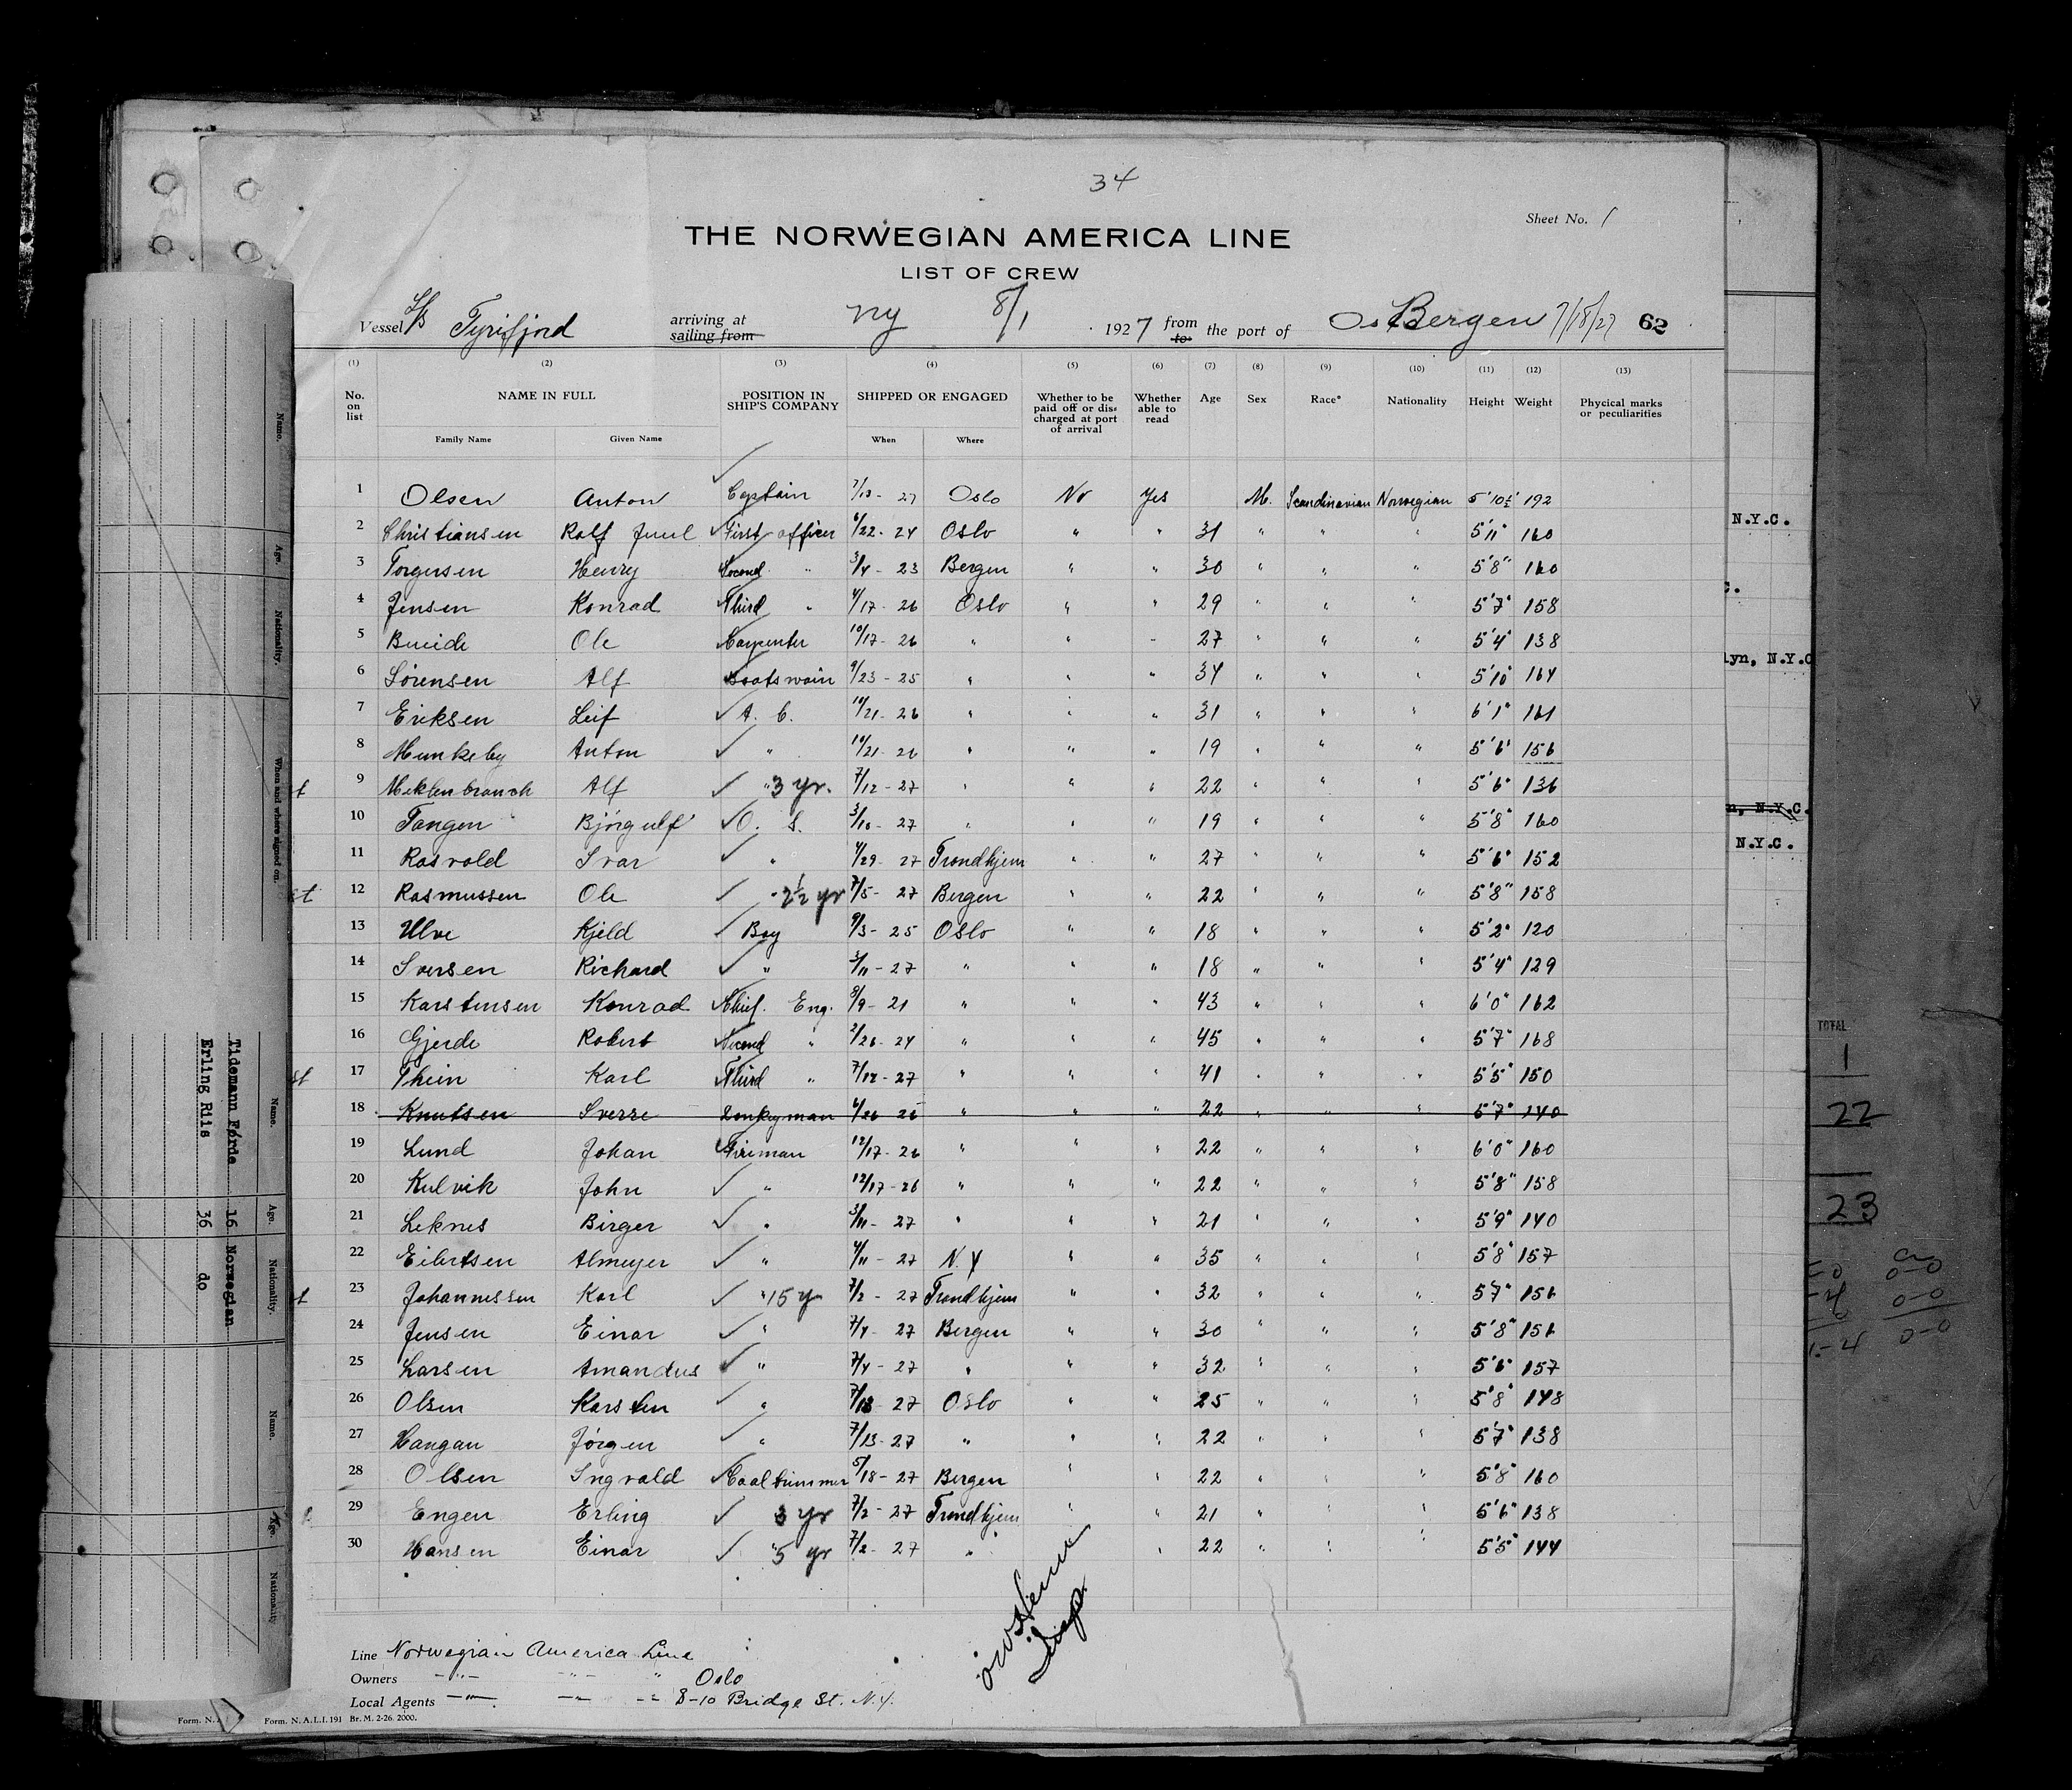 34
Sheet No. 1
THE NORWEGIAN AMERICA LINE
LIST OF CREW
Vessel S/S Tyrifjord arriving at sailing from NY 8/1 1927 from to the port of Os Bergen 7/18/27 62
(1) (2) (3) (4) (5) (6) (7) (8) (9) (10) (11) (12) (13)
No. on list NAME IN FULL POSITION IN SHIP'S COMPANY SHIPPED OR ENGAGED Whether to be paid off or discharged at port of arrival Whether able to read Age Sex Race* Nationality Height Weight Physical marks or peculiarities
Family Name Given Name When Where
1 Olsen Anton Captain 7/13 - 27 Oslo No Yes M. Scandinavian Norwegian 5'10½" 192
2 Christiansen Rolf Juul First officer 6/22 - 24 Oslo " " 31 " " " 5'11" 160
3 Torgersen Henry Second " 3/4 - 23 Bergen " " 30 " " " 5'8" 160
4 Jensen Konrad Third " 4/17 - 26 Oslo " " 29 " " " 5'7" 158
5 Bueide Ole Carpenter 10/17 - 26 " " " 27 " " " 5'4" 138
6 Sörensen Alf Boatswain 9/23 - 25 " " " 34 " " " 5'10" 164
7 Eriksen Leif A. B. 10/21 - 26 " " " 31 " " " 6'1" 161
8 Munkeby Anton " 10/21 - 26 " " " 19 " " " 5'6" 156
9 Meklenbrauch Alf " 3 yr. 7/12 - 27 " " " 22 " " " 5'6" 136
10 Tangen Björgulf O. S. 3/10 - 27 " " " 19 " " " 5'8" 160
11 Rosvold Ivar " 4/29 - 27 Trondhjem " " 27 " " " 5'6" 152
st 12 Rasmussen Ole " 2½ yr 7/5 - 27 Bergen " " 22 " " " 5'8" 158
13 Ulve Kjeld Boy 9/3 - 25 Oslo " " 18 " " " 5'2" 120
14 Iversen Richard " 3/11 - 27 " " " 18 " " " 5'4" 129
15 Karstensen Konrad Chief. Eng. 8/9 - 21 " " " 43 " " " 6'0" 162
16 Gjerde Robert Second " 2/26 - 24 " " " 45 " " " 5'7" 168
st 17 Thein Karl Third " 7/12 - 27 " " " 41 " " " 5'5" 150
18 Knutsen Sverre Donkeyman 6/26 26 " " " 22 " " " 5'7" 140
19 Lund Johan Fireman 12/17 - 26 " " " 22 " " " 6'0" 160
20 Kulvik John " 12/17 - 26 " " " 22 " " " 5'8" 158
21 Leknes Birger " 3/11 - 27 " " " 21 " " " 5'9" 140
22 Eibertsen Almeyer " 4/11 - 27 N.Y " " 35 " " " 5'8" 157
23 Johannessen Karl " 15 y 7/2 - 27 Trondhjem " " 32 " " " 5'7" 156
24 Jensen Einar " 7/4 - 27 Bergen " " 30 " " " 5'8" 156
25 Larsen Amandus " 7/4 - 27 " " " 32 " " " 5'6" 157
26 Olsen Karsten " 7/13 - 27 Oslo " " 25 " " " 5'8" 148
27 Haugan Jörgen " 7/13 - 27 " " " 22 " " " 5'7" 138
28 Olsen Ingvald Coaltrimmer 5/18 - 27 Bergen " " 22 " " " 5'8" 160
29 Engen Erling 3 yr 7/2 - 27 Trondhjem " " 21 " " " 5'6" 138
30 Hansen Einar " 5 yr 7/2 - 27 " " 22 " " " 5'5" 144
Line Norwegian America Line
Owners -"- -"- " Oslo
Local Agents -"- -"- -"- 8-10 Bridge St. N.Y.
Form. N. A Form. N.A.L.I. 191 Br. M. 2-26. 2000.
Name. Age. Nationality. When and where signed on.
Name. Age. Nationality.
Tidemann Førde 16 Norwegian
Erling Riis 36 do
Name. Age. Nationality
N.Y.C.
C.
lyn, N.Y.C
n, N.Y.C.
N.Y.C.
TOTAL
1
22
23
0-0
0-0
1-4 0-0